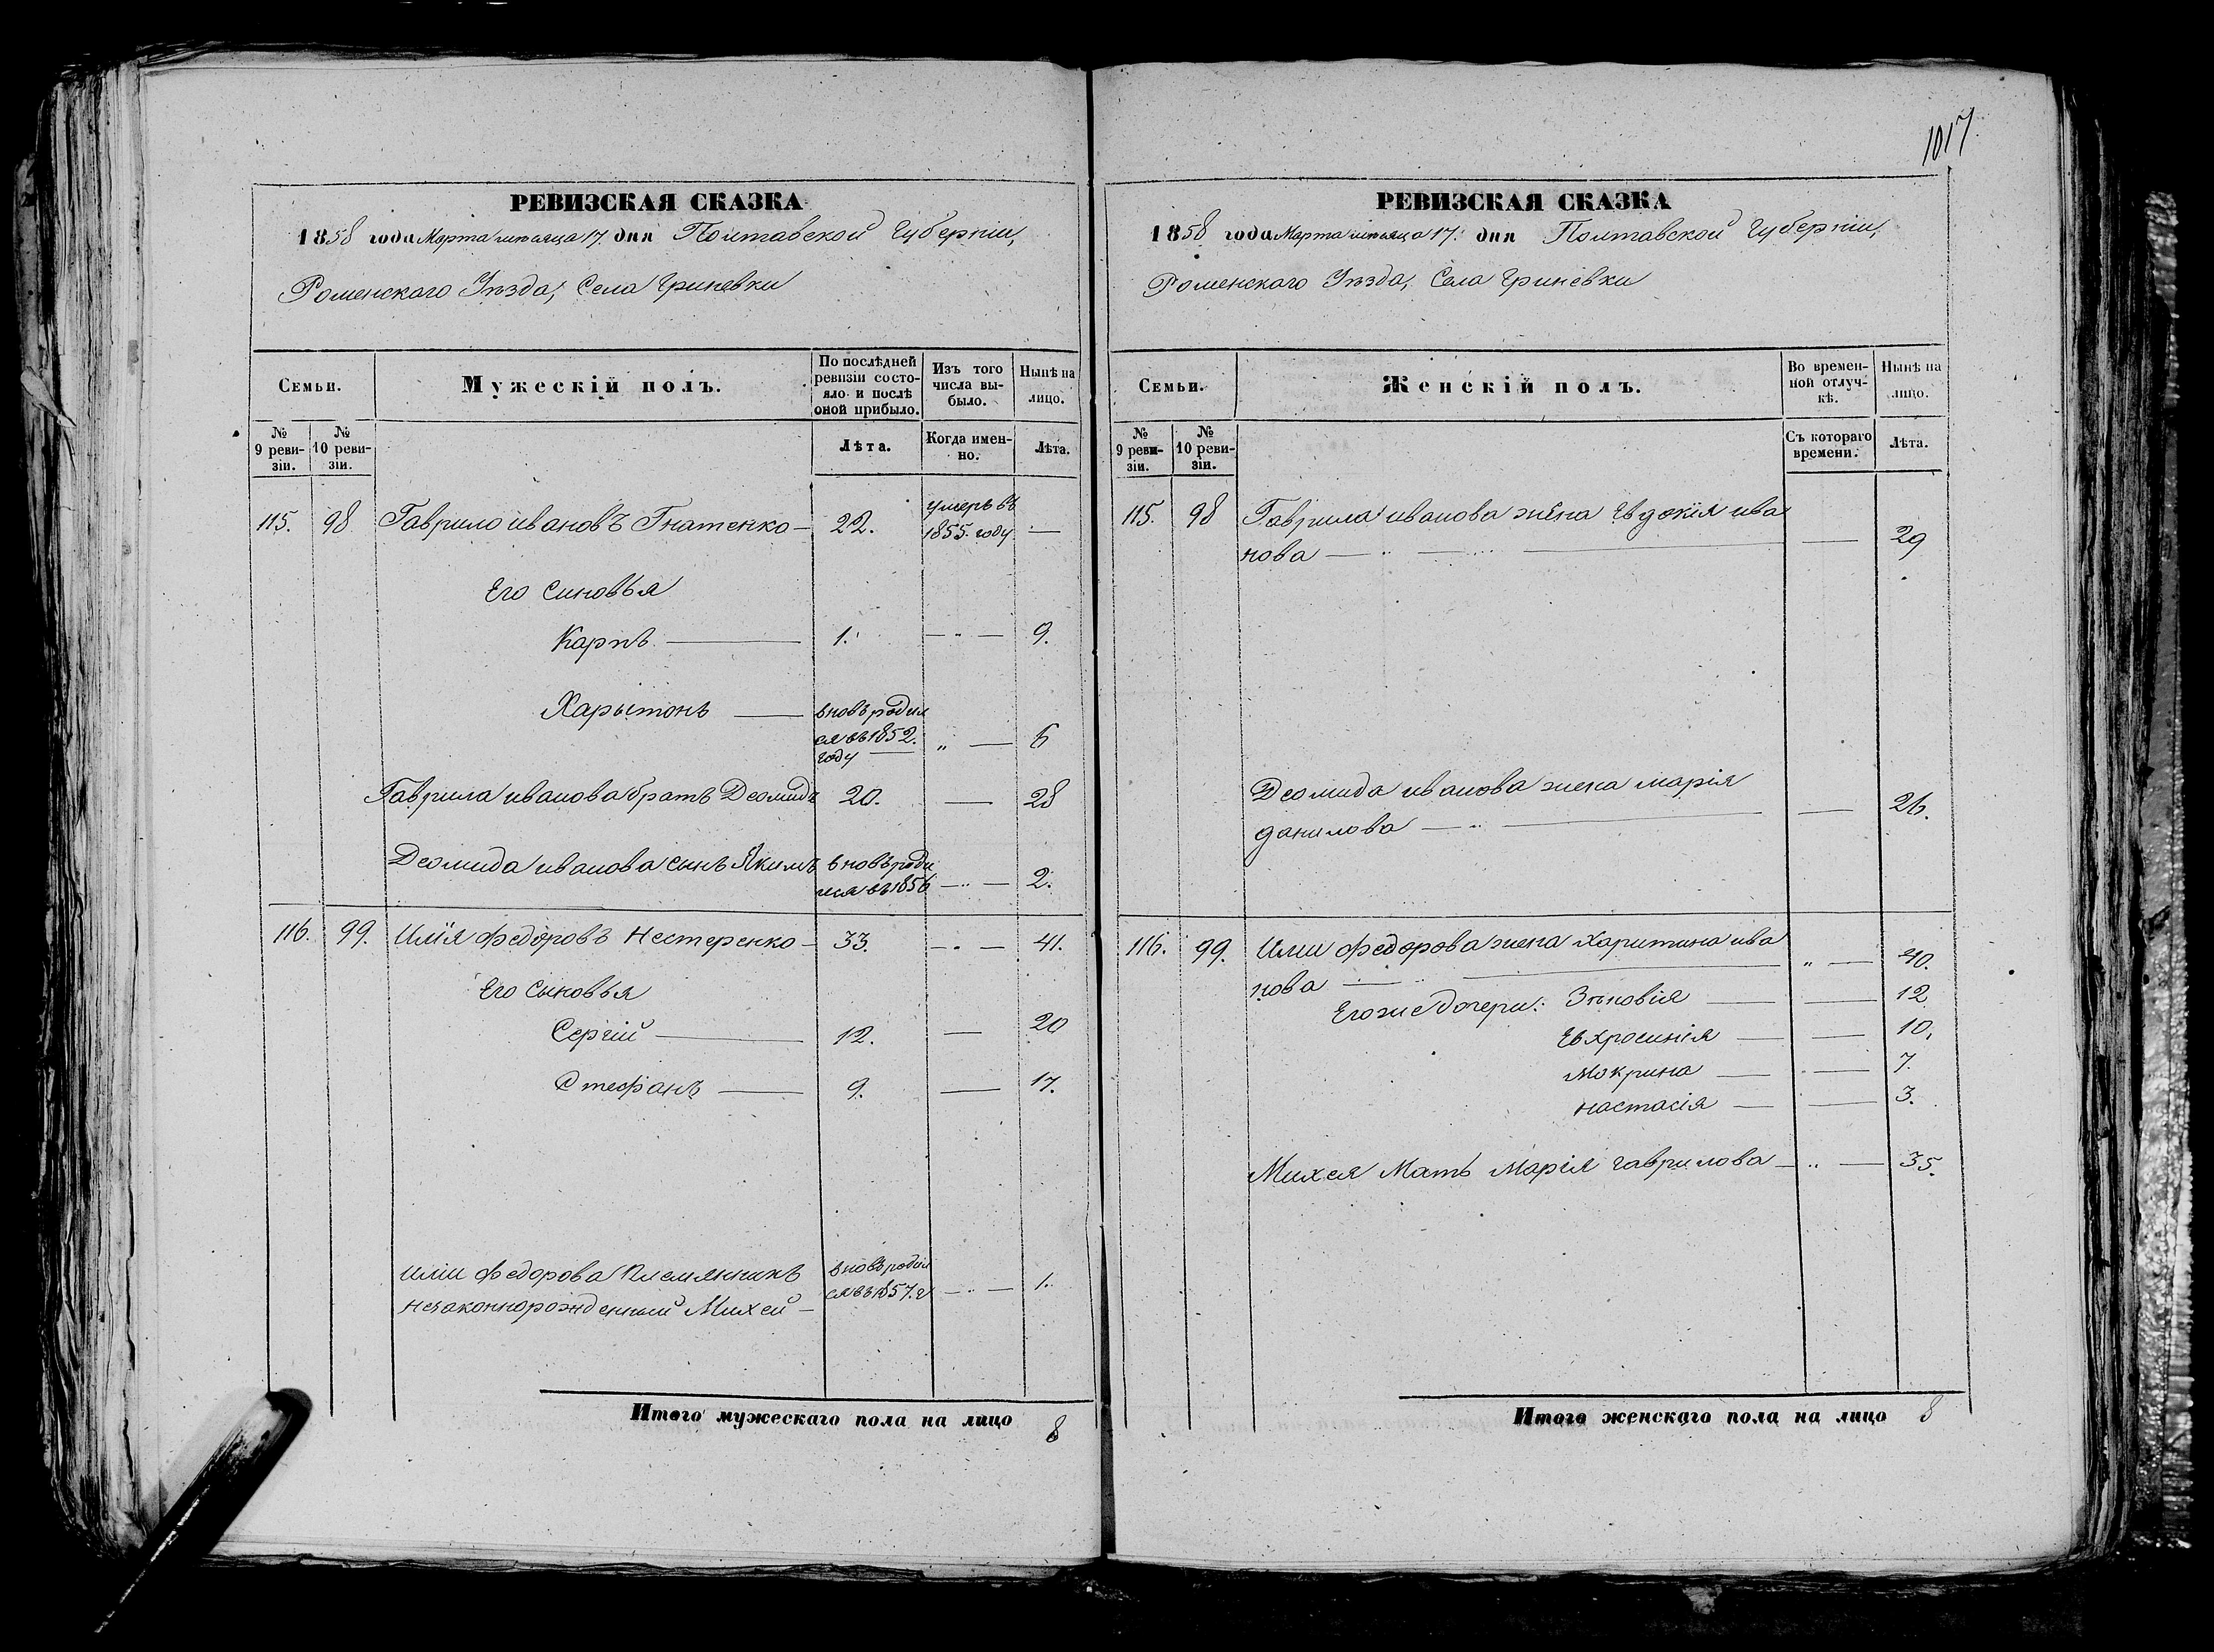 1017
РЕВИЗСКАЯ СКАЗКА
1858 года Марта мѣсяца 17. дня Полтавской Губерніи,
Роменскаго Уѣзда, Села Гриневки
Семьи.
Мужескій полъ.
По послѣдней ревизіи состояло и послѣ оной прибыло.
Изъ того числа выбыло.
Нынѣ на лицо.
№ 9 ревизіи.
№ 10 ревизіи.
Лѣта.
Когда именно.
Лѣта.
115. 98 Гаврило ивановъ Гнатенко — 22. умеръ въ 1855. году —
Его Синовья
Карпъ — 1. — 9.
Харытонъ — вновь родился въ 1852. году „ — 6
Гаврила иванова братъ Деомидъ 20. — 28
Деомида иванова сынъ Якимъ вновь родился въ 1856 — 2.
116. 99. Илія Федоровъ Нестеренко — 33. — 41.
Его Сыновья
Сергій — 12. — 20
Стефанъ — 9. — 17.
иліи Федорова Племянникъ
незаконнорожденный Михей — вновь родился въ 1857. г — 1.
Итого мужескаго пола на лицо 8
РЕВИЗСКАЯ СКАЗКА
1858 года Марта мѣсяца 17. дня Полтавской Губерніи,
Роменскаго Уѣзда, Села Гриневки
Семьи.
Женскій полъ.
Во временной отлучкѣ.
Нынѣ на лицо.
№ 9 ревизіи.
№ 10 ревизіи.
Съ котораго времени.
Лѣта.
115. 98 Гаврила иванова жена Евдокія ива
нова — — 29
Деомида иванова жена марія
данилова — — 26.
116. 99. Иліи Федорова жена Харитина ива
нова — „ — 40.
Его же Дочери: Зѣновія — — 12
Евхросинія — — 10,
Мокрина — — 7.
настасія — — 3.
Михея Мать Марія гаврилова — „ — 35.
Итого женскаго пола на лицо 8